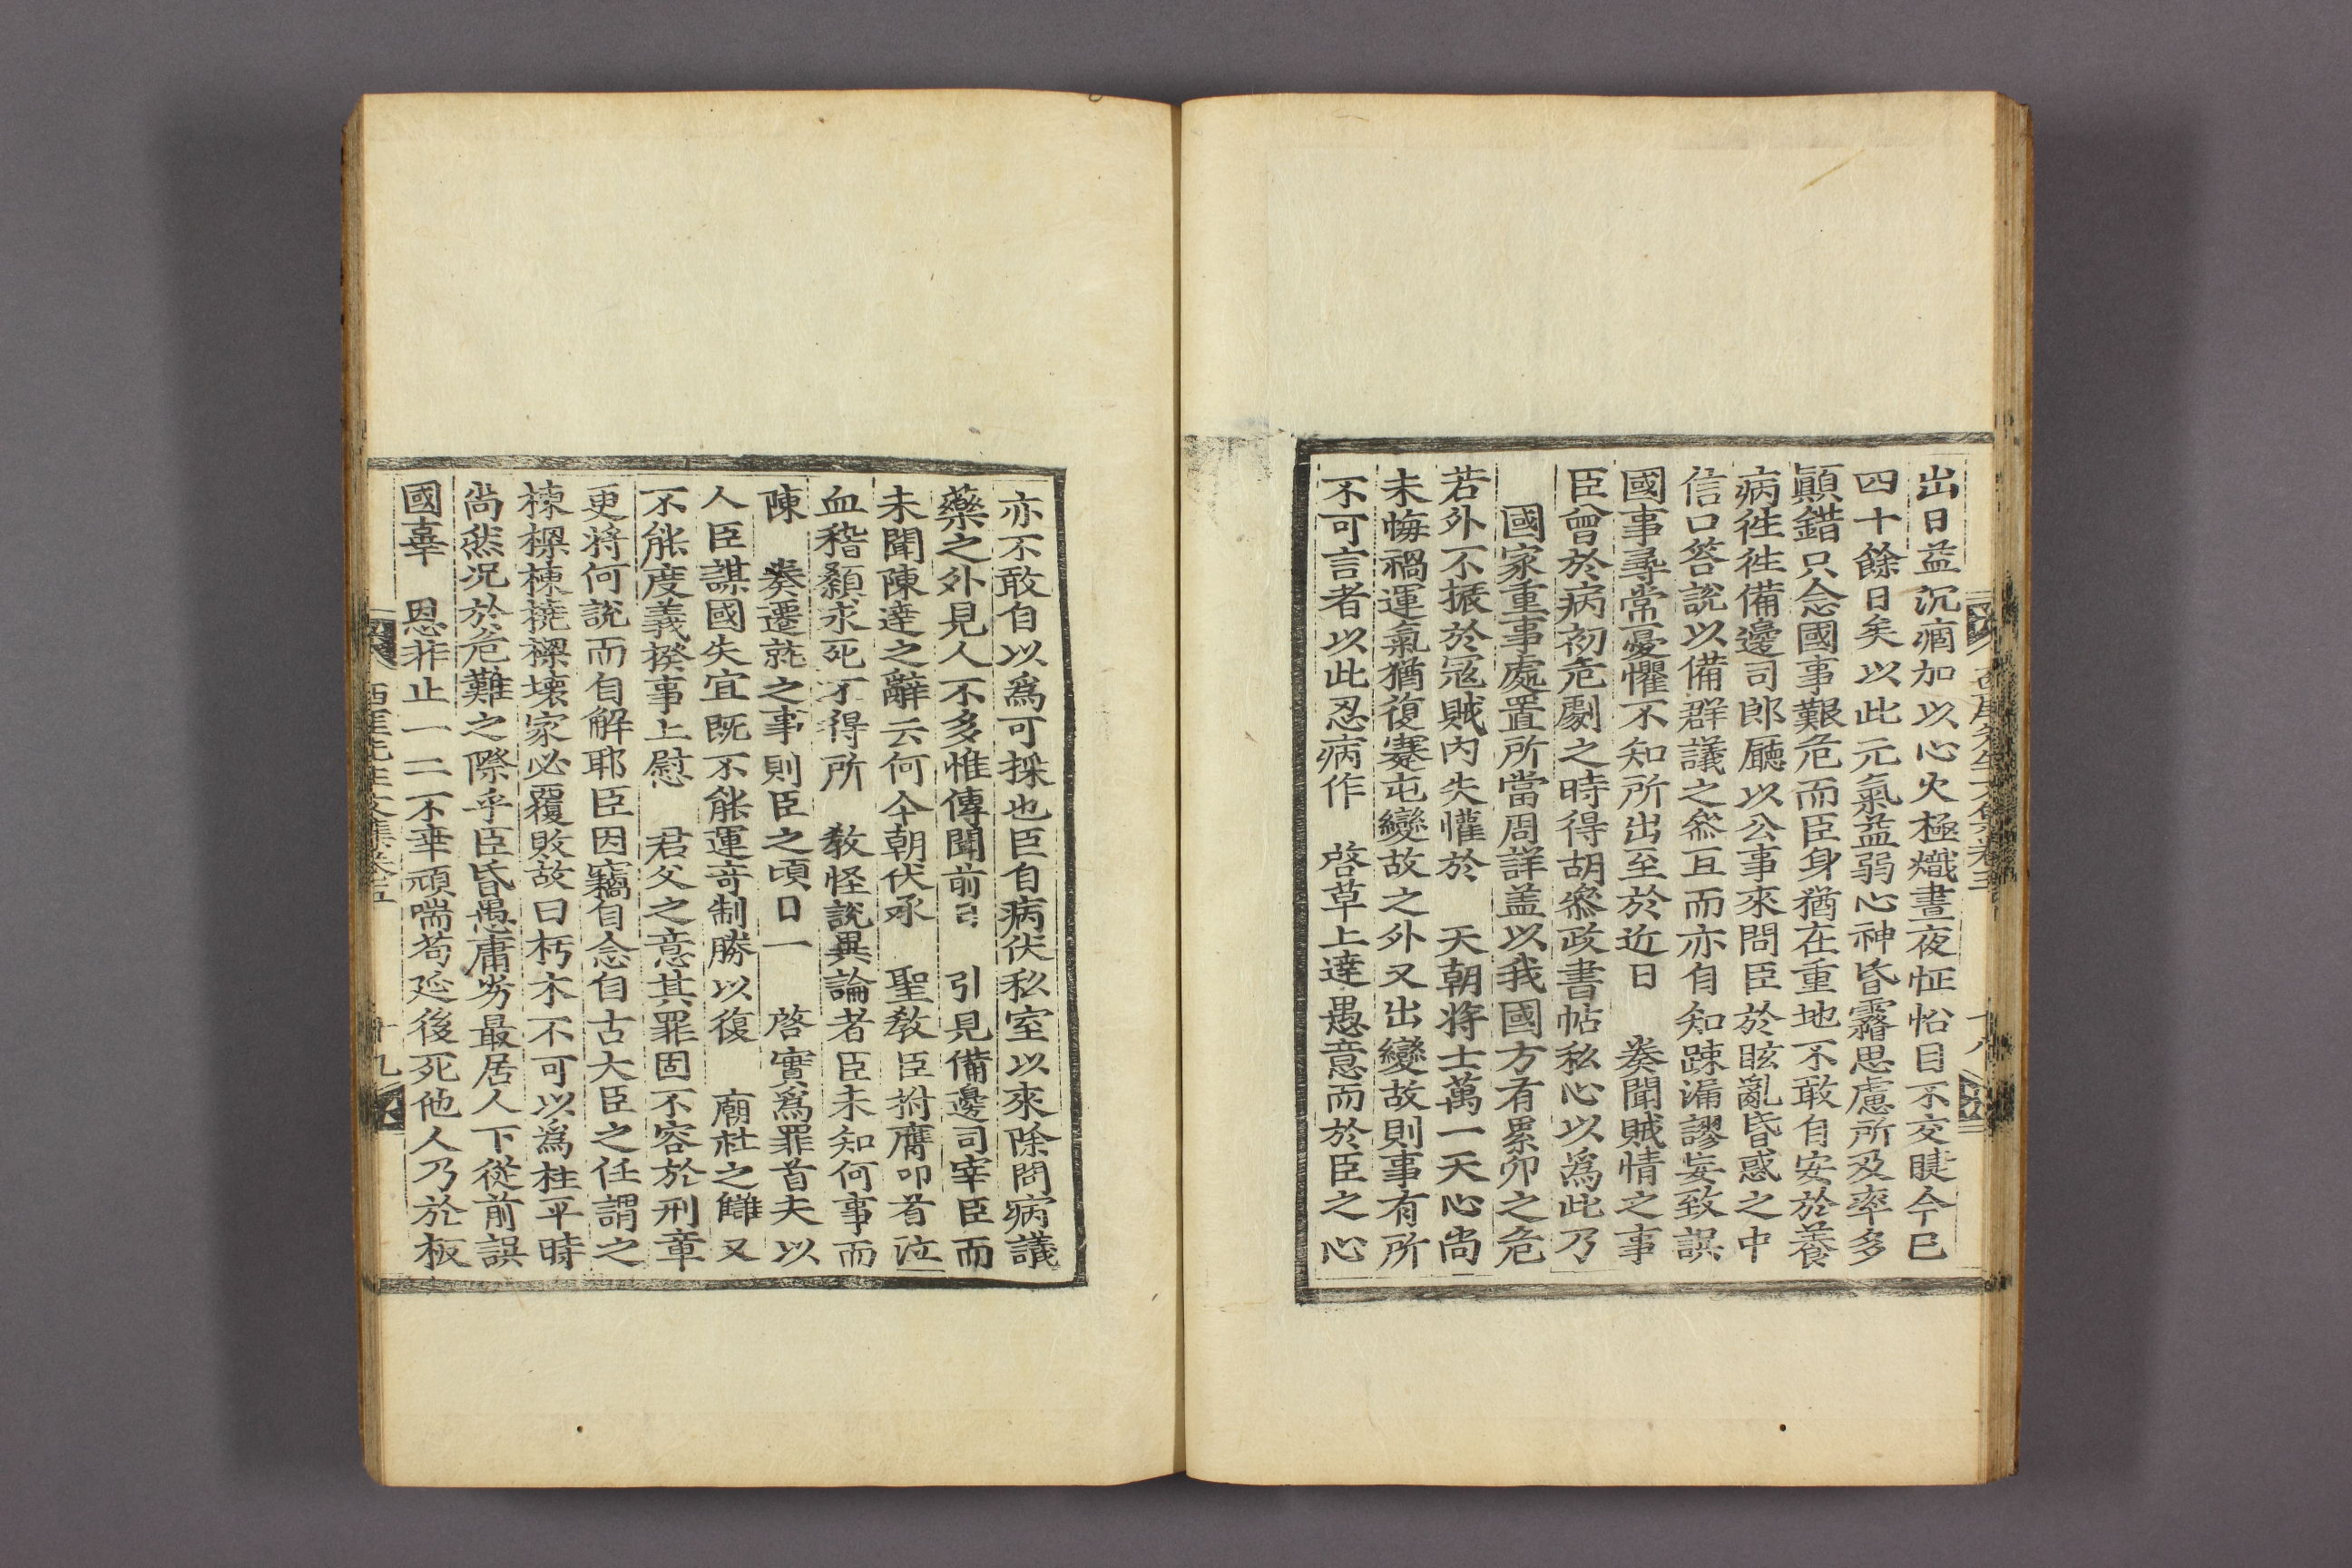 出日益沉痼加以心火極熾晝夜怔忪目不交睫今已
四十餘日矣以此元氣益弱心神昏霧思慮所及率多
顚錯只念國事艱危而臣身猶在重地不敢自安於養
病徃徃備邊司郎廳以公事來問臣於眩亂昏惑之中
信口答說以備群議之叅互而亦自知踈漏謬妄致誤
國事尋常憂懼不知所出至於近日 奏聞賊情之事
臣曾於病初危劇之時得胡叅政書帖私心以爲此乃
國家重事處置所當周詳盖以我國方有累卵之危
若外不振於冦賊內失懽於 天朝將士萬一天心尚
未悔禍運氣猶復蹇屯變故之外又出變故則事有所
不可言者以此忍病作 啓草上達愚意而於臣之心
西厓先生文集卷五 十八
亦不敢自以爲可採也臣自病伏私室以來除問病議
藥之外見人不多惟傳聞前日 引見備邊司宰臣而
未聞陳達之辭云何今朝伏承 聖敎臣拊膺叩首泣
血稽顙求死不得所 敎怪說異論者臣未知何事而
陳 奏遷就之事則臣之頃日一 啓實爲罪首夫以
人臣謀國失宜旣不能運奇制勝以復 廟社之讎又
不能度義揆事上慰 君父之意其罪固不容於刑章
更將何說而自解耶臣因竊自念自古大臣之任謂之
棟樑棟撓樑壞家必覆敗故曰朽木不可以爲柱平時
尚然况於危難之際乎臣昏愚庸劣最居人下從前誤
國辜 恩非止一二不幸頑喘苟延後死他人乃於板
西厓先生文集卷五 十九